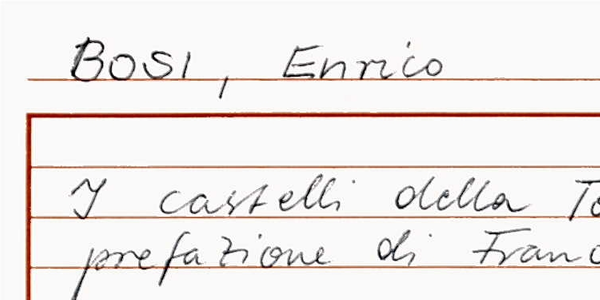 BOSI, Enrico
I castelli della To
prefazione di Franc